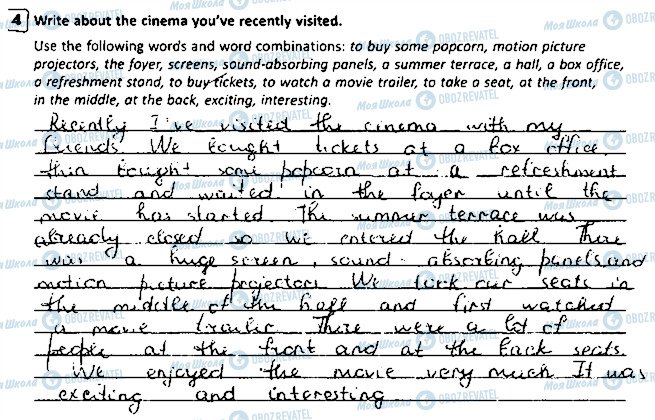 4 Write about the cinema you've recently visited.
Use the following words and word combinations: to buy some popcorn, motion picture
projectors, the foyer, screens, sound-absorbing panels, a summer terrace, a hall, a box office,
a refreshment stand, to buy tickets, to watch a movie trailer, to take a seat, at the front,
in the middle, at the back, exciting, interesting.
Recently I've visited the cinema with my
friends. We bought tickets at a box office.
then bought some popcorn at a refreshment
stand and waited in the foyer until the
movie has started. The summer terrace was
already closed so we entered the hall. There
was a huge screen, sound-absorbing panels, and
motion picture projectors We took our seats in
the middle of the hall and first watched
a movie trailer There were a lot of
people at the front and at the back seats.
We enjoyed the movie very much It was
exciting and interesting
Моя Школа OBOZREVATEL